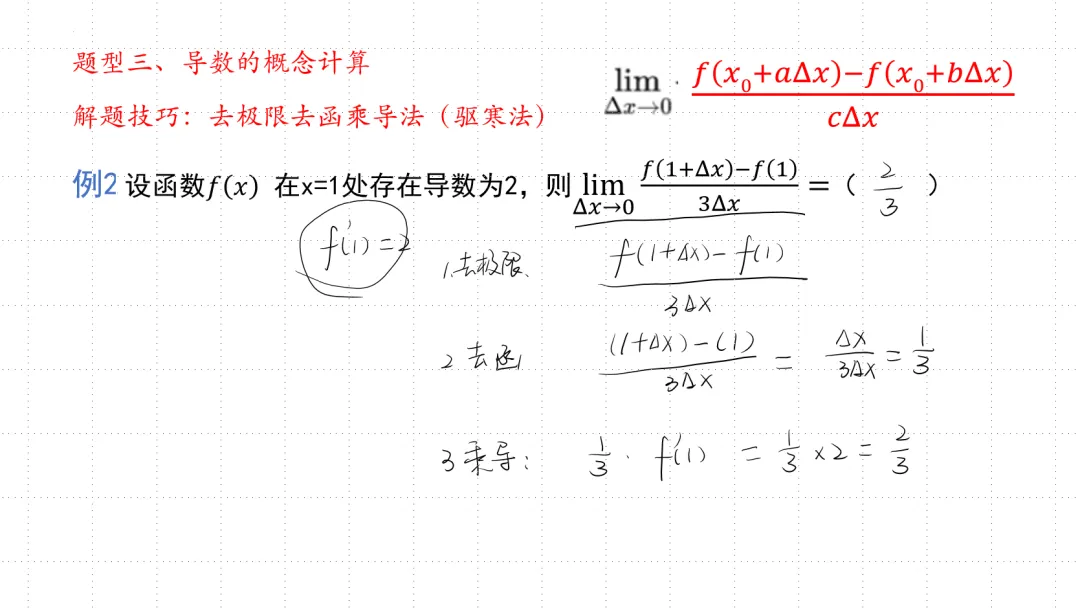 题型三、导数的概念计算
解题技巧：去极限去函乘导法（驱寒法）
lim Δx→0 f(x₀+aΔx)−f(x₀+bΔx) / cΔx
例2 设函数f(x) 在x=1处存在导数为2，则 lim Δx→0 f(1+Δx)−f(1) / 3Δx =（ 2/3 ）
f'(1)=2
1.去极限、 f(1+Δx)−f(1) / 3Δx
2 去函 (1+Δx)−(1) / 3Δx = Δx/3Δx = 1/3
3乘导： 1/3 · f'(1) = 1/3 ×2 = 2/3